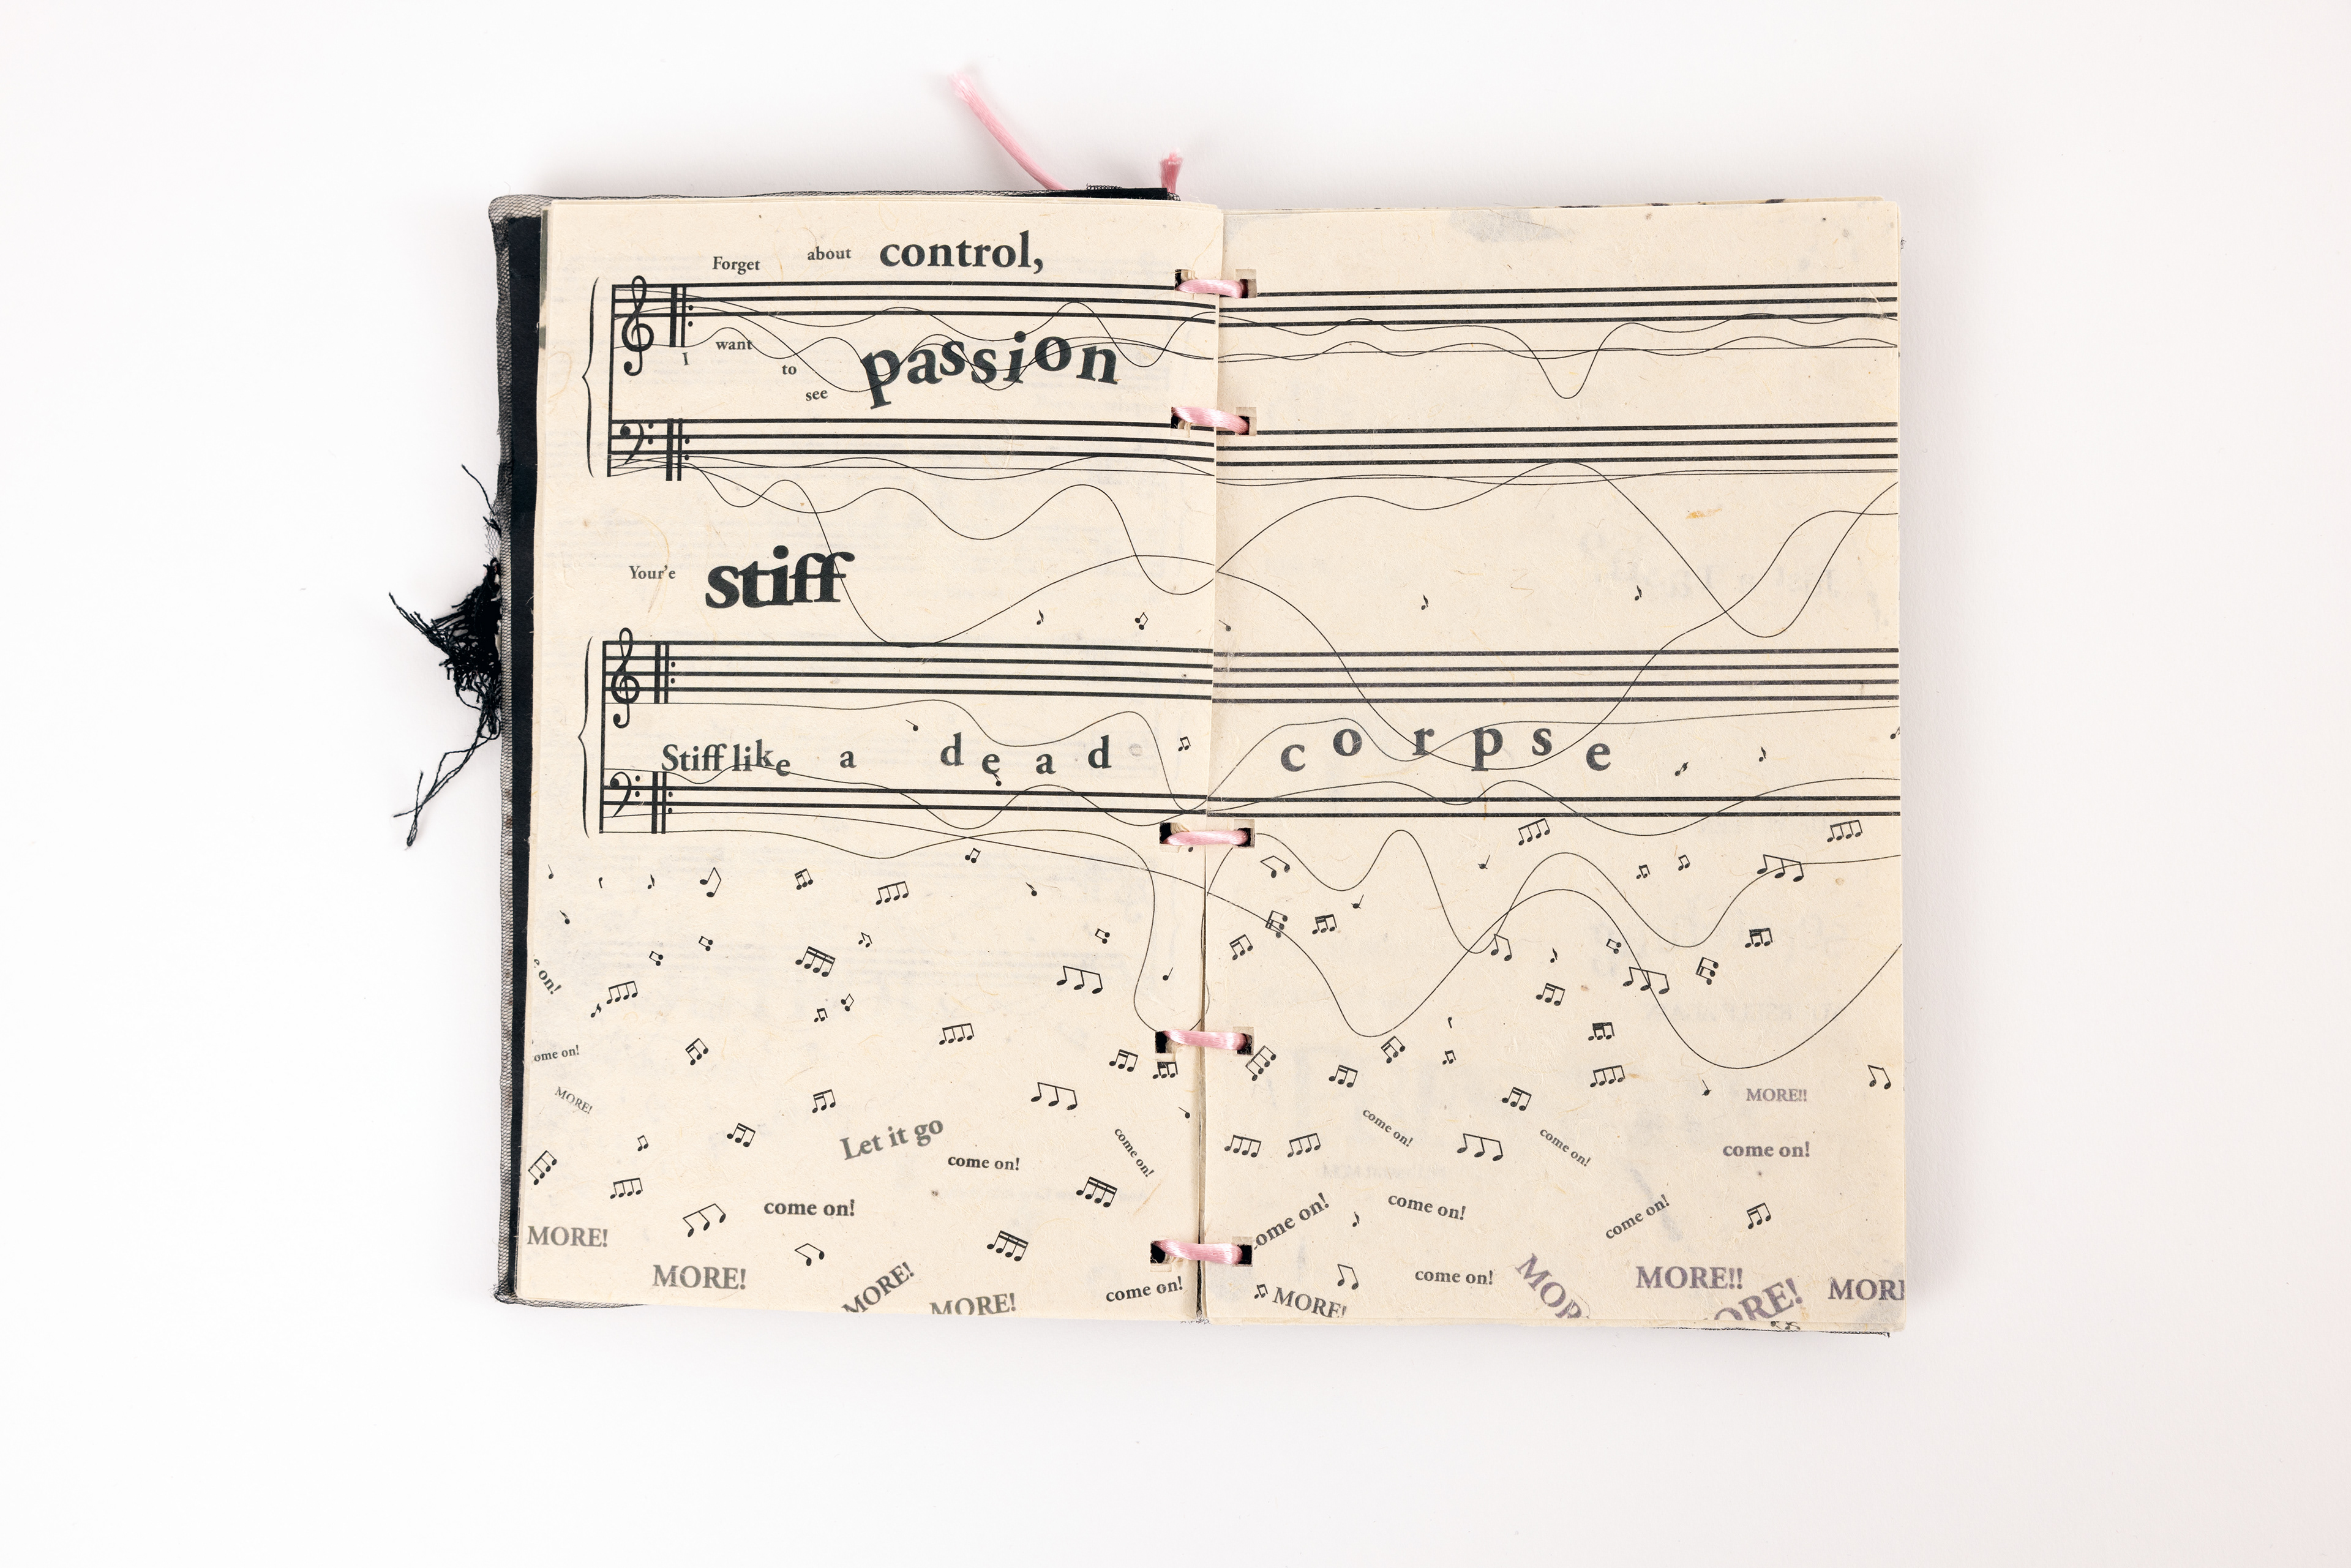 Forget about control,
I want to see passion
Your'e stiff
Stiff like a dead corpse
e on!
ome on!
MORE!
MORE!!
come on!
come on!
come on!
come on!
Let it go
come on!
come on!
come on!
come on!
come on!
MORE!
MORE!
MORE!
MORE!
come on!
come on!
MORE!
MOR
MORE!!
ORE!
MORE